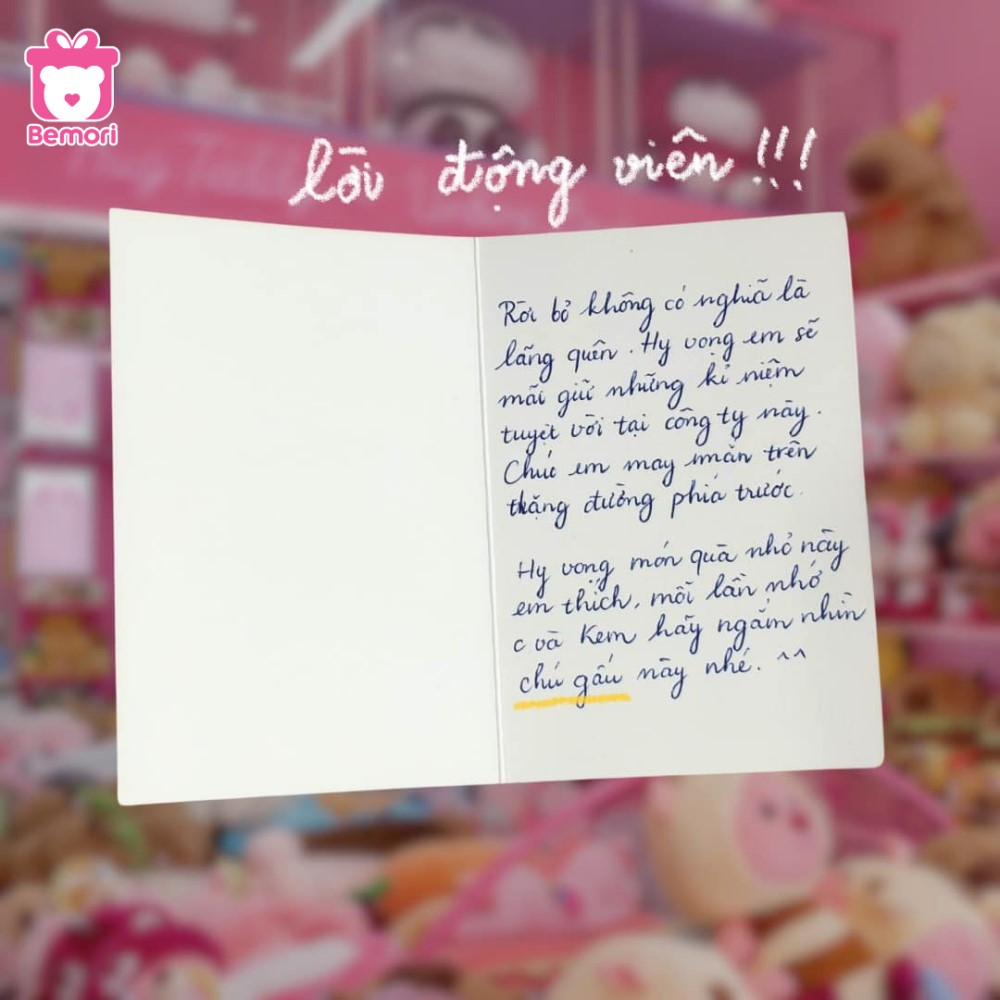 Bemori
lời động viên!!!
Rời bỏ không có nghĩa là
lãng quên. Hy vọng em sẽ
mãi giữ những kỉ niệm
tuyệt vời tại công ty này.
Chúc em may mắn trên
thặng đường phía trước.
Hy vọng món quà nhỏ này
em thích, mỗi lần nhớ
c và Kem hãy ngắm nhìn
chú gấu này nhé. ^^